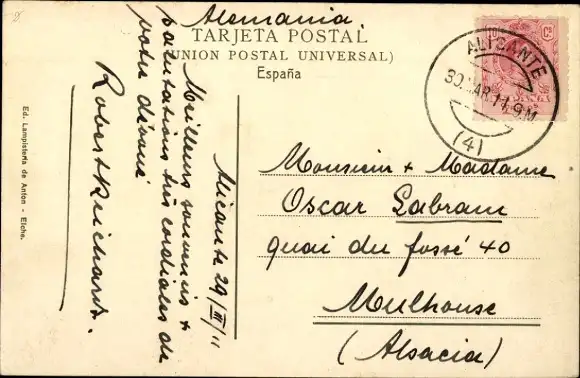 Alemania
TARJETA POSTAL
(UNION POSTAL UNIVERSAL)
España
ALICANTE
30 MAR 11 9M
(4)
Alicante 29/III/11
Meilleurs souvenirs &
salutations très cordiales de
votre dévoué
Robert Reichard.
Monsieur & Madame
Oscar Labram
quai du fossé 40
Mulhouse
(Alsacia)
Ed. Lampistería de Anton - Elche.